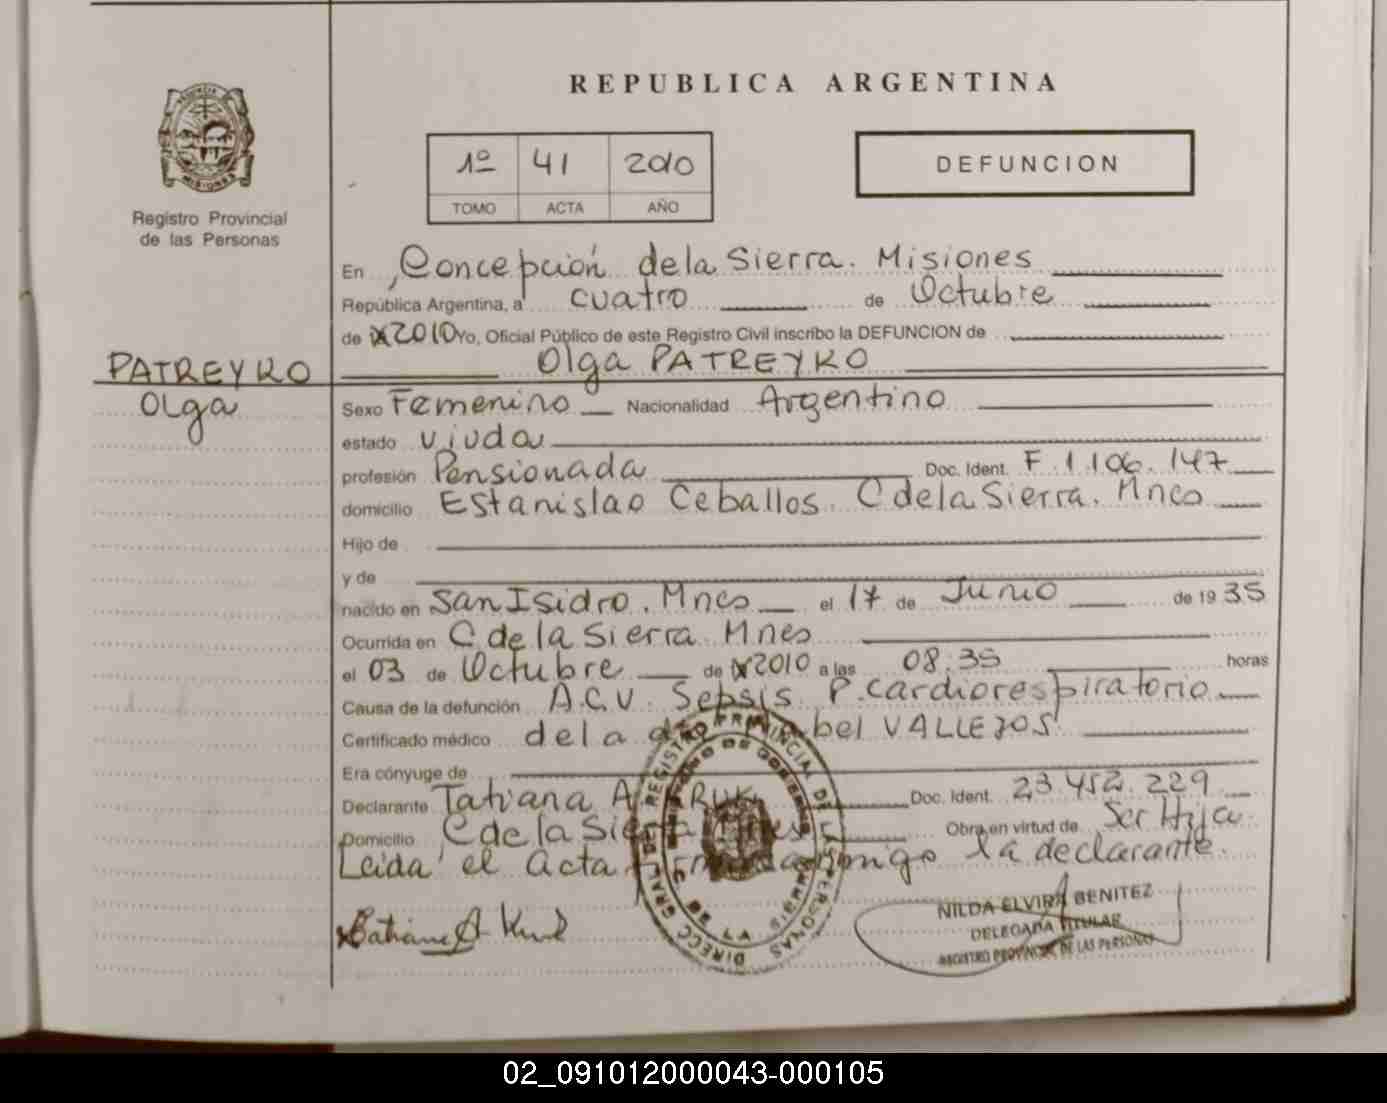 REPUBLICA ARGENTINA
1º 41 2010
TOMO ACTA AÑO
DEFUNCION
PROVINCIA DE MISIONES
Registro Provincial
de las Personas
En Concepción de la Sierra. Misiones
República Argentina, a cuatro de Octubre
de 2010 Yo, Oficial Público de este Registro Civil inscribo la DEFUNCION de
Olga PATREYKO
PATREYKO
Olga
Sexo Femenino Nacionalidad Argentino
estado viuda
profesión Pensionada Doc. Ident. F 1.106.147
domicilio Estanislao Ceballos. C de la Sierra. Mnes
Hijo de
y de
nacido en San Isidro. Mnes el 17 de Junio de 1935
Ocurrida en C de la Sierra Mnes
el 03 de Octubre de 2010 a las 08:35 horas
Causa de la defunción A.C.V. Sepsis P. cardiorespiratorio
Certificado médico de la VALLEJOS
Era cónyuge de
Declarante Tatiana A. Doc. Ident. 23.452.229
Domicilio C de la Sierra Mnes Obra en virtud de Ser Hija
Leida el acta firma conmigo la declarante.
NILDA ELVIRA BENITEZ
DELEGADA TITULAR
REGISTRO PROVINCIAL DE LAS PERSONAS
DIRECC GRAL DEL REGISTRO PROVINCIAL DE LAS PERSONAS
02_091012000043-000105